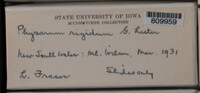 STATE UNIVERSITY OF IOWA
MYXOMYCETE COLLECTION
809959
Physarum rigidum G. Lister
New South Wales: Mt. Wilson, Mar. 1931
L. Fraser
Slide only